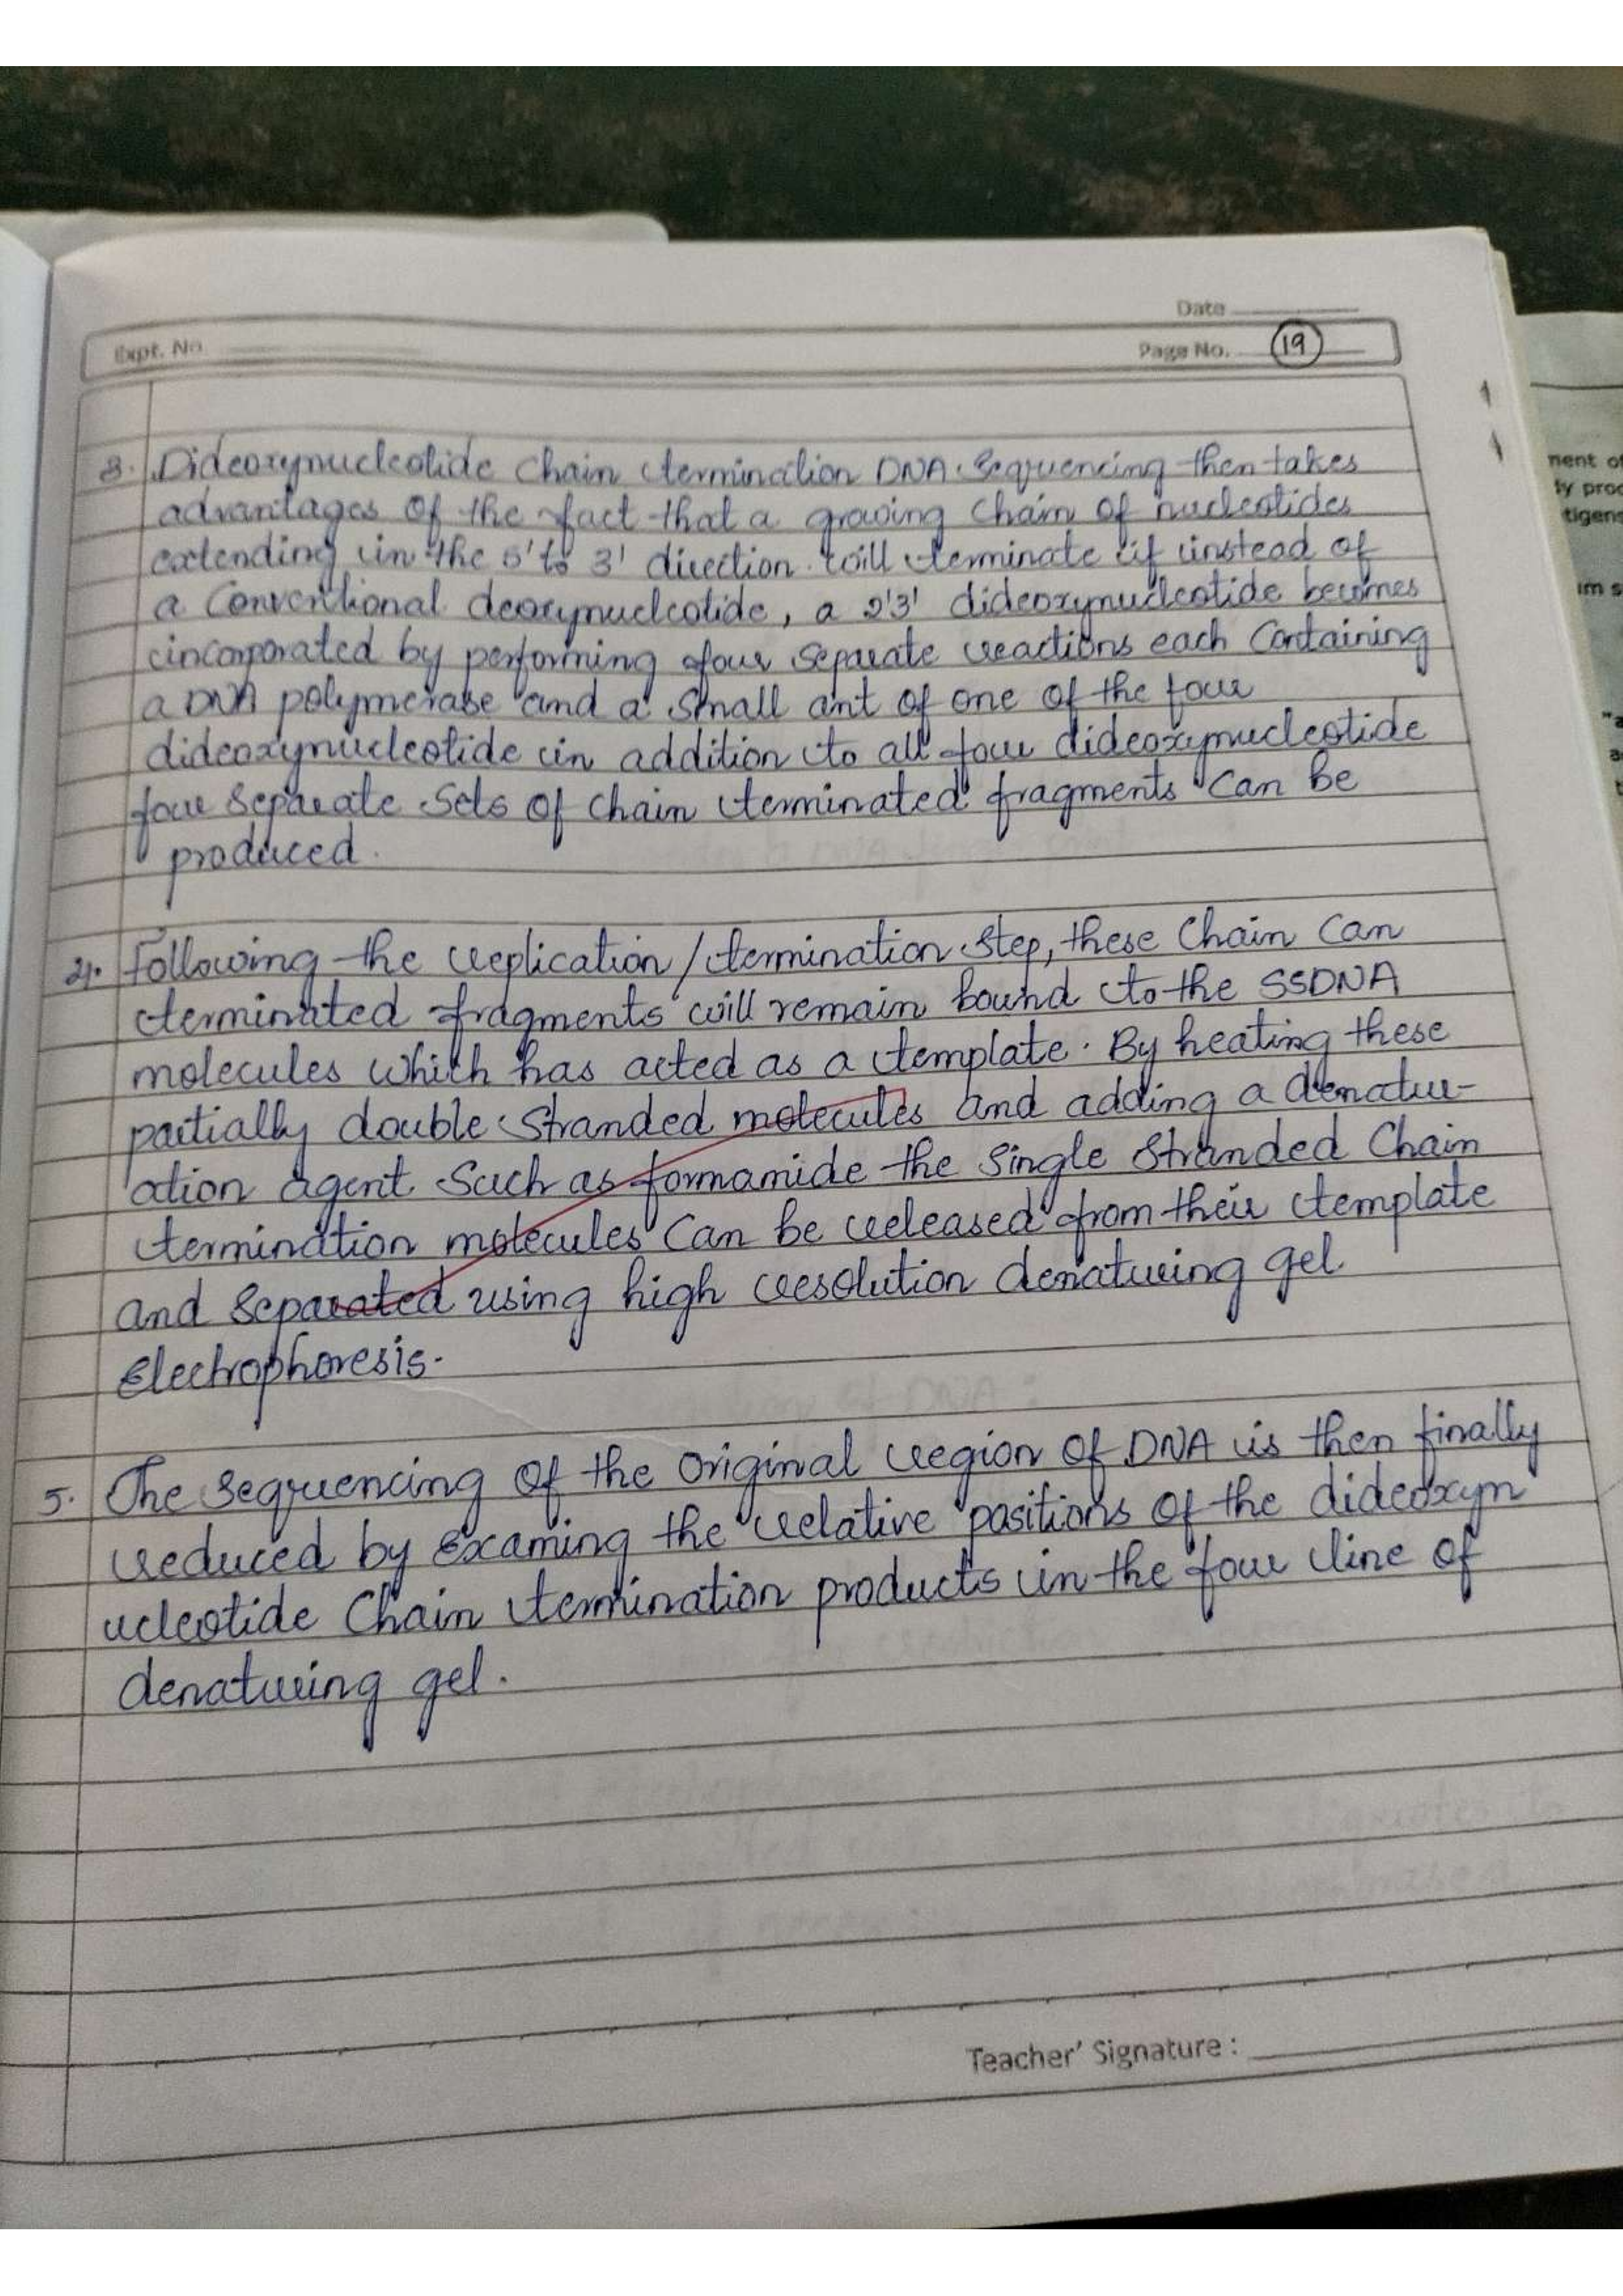 Date
Expt. No.
Page No. 19
3. Dideoxynucleotide Chain termination DNA Sequencing then takes
advantages of the fact that a growing chain of nucleotides
extending in the 5' to 3' direction will terminate if instead of
a Conventional deoxynucleotide, a 2'3' dideoxynucleotide becomes
incorporated by performing four separate reactions each Containing
a DNA polymerase and a small amt of one of the four
dideoxynucleotide in addition to all four dideoxynucleotide
four separate sets of chain terminated fragments can be
produced.
4. Following the replication/termination step, these Chain Can
terminated fragments will remain bound to the SSDNA
molecules which has acted as a template. By heating these
partially double stranded molecules and adding a denatur-
ation agent such as formamide the single stranded Chain
termination molecules Can be released from their template
and separated using high resolution denaturing gel
Electrophoresis.
5. The sequencing of the original region of DNA is then finally
reduced by examing the relative positions of the dideoxyn
ucleotide Chain termination products in the four line of
denaturing gel.
Teacher' Signature :
nent of
ly proc
tigens
um s